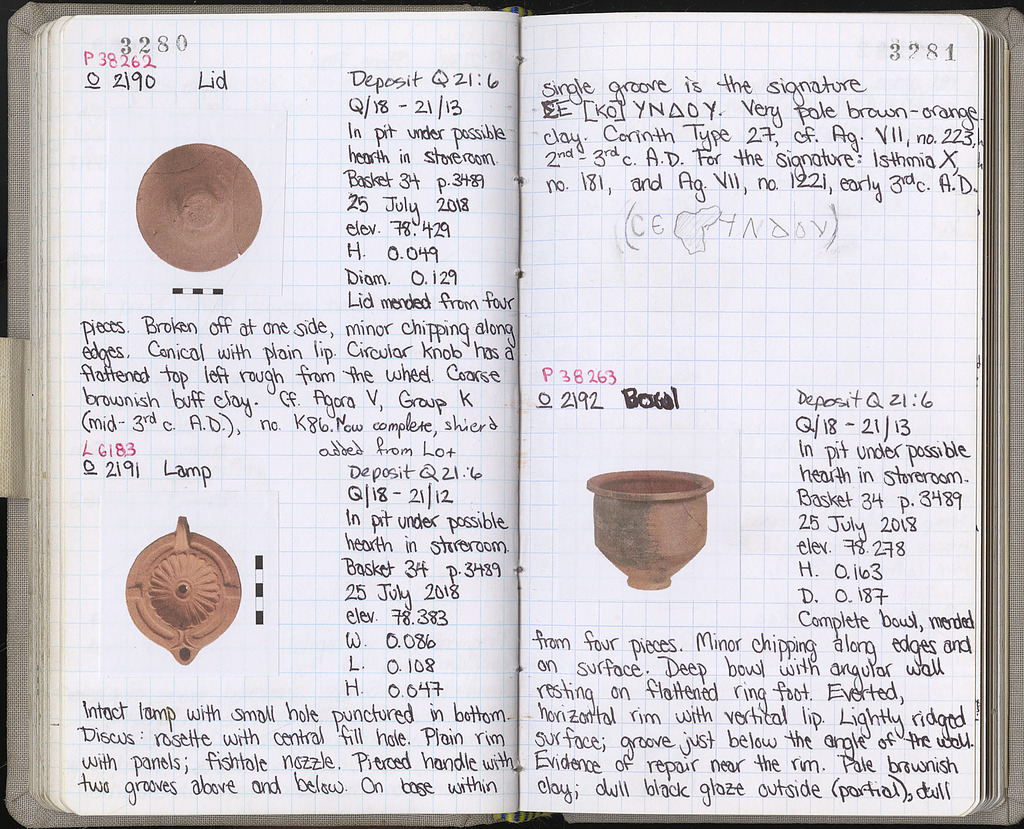 3280
P 38262
O 2190 Lid
Deposit Q 21:6
Q/18 - 21/13
In pit under possible
hearth in storeroom.
Basket 34 p.3489
25 July 2018
elev. 78.429
H. 0.049
Diam. 0.129
Lid mended from four
pieces. Broken off at one side, minor chipping along
edges. Conical with plain lip. Circular knob has a
flattened top left rough from the wheel. Coarse
brownish buff clay. Cf. Agora V, Group K
(mid-3rd c. A.D.), no. K86. Now complete, sherd
added from Lot
L 6183
O 2191 Lamp
Deposit Q 21:6
Q/18 - 21/12
In pit under possible
hearth in storeroom.
Basket 34 p.3489
25 July 2018
elev. 78.383
W. 0.086
L. 0.108
H. 0.047
Intact lamp with small hole punctured in bottom.
Discus: rosette with central fill hole. Plain rim
with panels; fishtale nozzle. Pierced handle with
two grooves above and below. On base within
3281
single groove is the signature
CE [KO] YNΔOY. Very pale brown-orange
clay. Corinth Type 27, cf. Ag. VII, no. 223,
2nd - 3rd c. A.D. For the signature: Isthmia X,
no. 181, and Ag. VII, no. 1221, early 3rd c. A.D.
(CE YNΔOY)
P 38263
O 2192 Bowl
Deposit Q 21:6
Q/18 - 21/13
In pit under possible
hearth in storeroom.
Basket 34 p. 3489
25 July 2018
elev. 78.278
H. 0.163
D. 0.187
Complete bowl, mended
from four pieces. Minor chipping along edges and
on surface. Deep bowl with angular wall
resting on flattened ring foot. Everted,
horizontal rim with vertical lip. Lightly ridged
surface; groove just below the angle of the wall.
Evidence of repair near the rim. Pale brownish
clay; dull black glaze outside (partial), dull